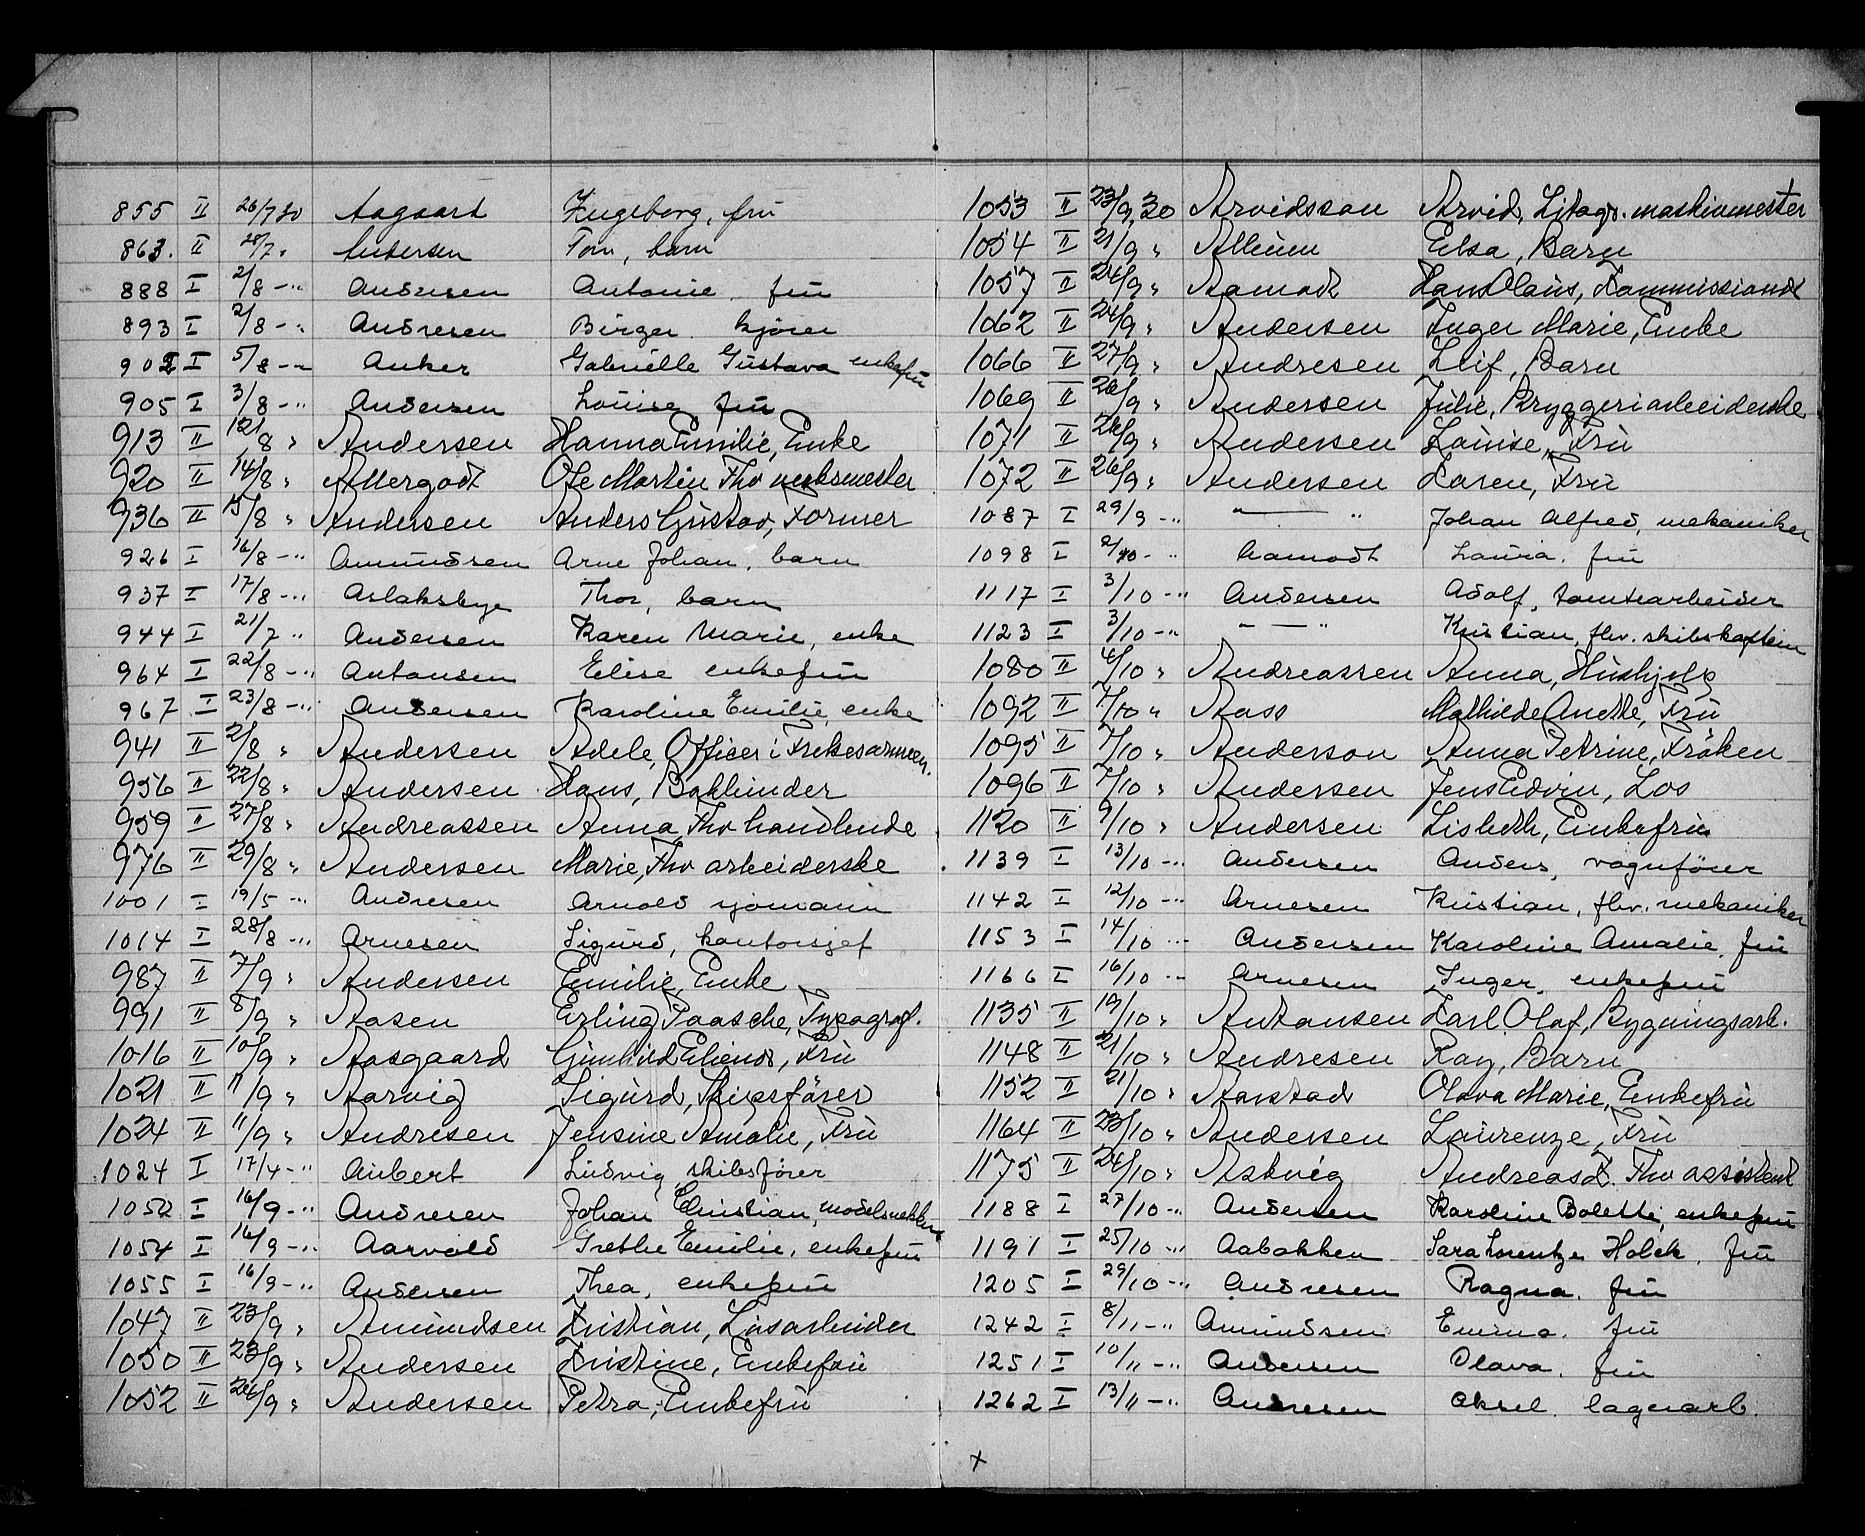 855 II 26/7 30 Aagaart Ingeborg, frü
863. II 28/7 " Andersen Tom, barn
888 I 2/8 -" Andresen Antonie frü
893 I 2/8 -" Andresen Birger kjörer
902 I 5/8 -" Anker Gabrielle Gustava enkefrü
905 I 3/8 -" Andersen Louise frü
913 II 12/8 " Andersen Hanna Emilie, Enke
920 II 14/8 " Allergodt Ole Martin Fhv verksmester
936 II 15/8 " Andersen Anders Güstav, Former
926 I 16/8 -" Amundsen Arne Johan, barn
937 I 17/8 -" Aslaksbye Thor, barn
944 I 21/7 " Andersen Karen Marie, enke
964 I 22/8 -" Antonsen Elise enkefrü
967 I 23/8 -" Andersen Karoline Emilie, enke
941 II 2/8 " Andersen Adele, Officer i Frelsesarmeen.
956 II 22/8 " Andersen Hans, Bokbinder
959 II 27/8 " Andreassen Anna, Fhv handlende
976 II 29/8 " Andersen Marie, Fhv arbeiderske
1001 I 19/5 -" Andresen Arnold sjömann
1014 I 28/8 -" Arnesen Sigurd, kontorsjef
987 II 7/9 " Andersen Emilie, Enke
991 II 8/9 " Aasen Erling Paasche, Typograf.
1016 II 10/9 " Aasgaard Gunhild Eliens, Frü
1021 II 11/9 " Aarvig Sigürd, Skipsförer
1024 II 11/9 " Andresen Jensine Amalie, Frü
1024 I 17/4 -" Aubert Ludvig skibsförer
1052 I 16/9 -" Andresen Johan Christian, modelsnekker
1054 I 16/9 -" Aarvold Grethe Emilie, enkefrü
1055 I 16/9 -" Andersen Thea, enkefrü
1047 II 23/9 " Amündsen Kristian, Løsarbeider
1050 II 23/9 " Andersen Kristine, Enkefrü
1052 II 24/9 " Andersen Petra, Enkefrü
1053 II 23/9 30 Arvidsson Arvid, Litogr. maskinmester
1054 II 21/9 " Allium Elsa, Barn
1057 II 24/9 " Aamodt Hans Olaüs, Kommissionær
1062 II 24/9 " Andersen Inger Marie, Enke
1066 II 27/9 " Andresen Leif, Barn
1069 II 26/9 " Andersen Jülie, Bryggeriarbeiderske
1071 II 26/9 " Andersen Loüise, Frü
1072 II 26/9 " Andersen Karen, Frü
1087 I 29/9 -" — " Johan Alfred, mekaniker
1098 I 2/10 - " Aamodt Laura. frü
1117 I 3/10 -" Andersen Adolf, tomtearbeider
1123 I 3/10 -" " — " Kristian, fhv. skibskaptein
1080 II 4/10 " Andreassen Anna, Hüshjelp
1092 II 7/10 " Aass Mathilde Anette, Frü
1095 II 7/10 " Anderson Anna Petrine, Fröken
1096 II 7/10 " Andersen Jens Edvin, Los
1120 II 9/10 " Andersen Lisbeth, Enkefrü
1139 I 13/10 -" Andersen Anders, vognförer
1142 I 12/10 -" Arnesen Kristian, fhv. mekaniker
1153 I 14/10 -" Andersen Karoline Amalie, frü
1166 I 16/10 -" Arnesen Inger, enkefrü
1135 II 19/10 " Antonsen Karl Olaf, Bygningsarb.
1148 II 21/10 " Andresen Roy, Barn
1152 II 21/10 " Aarstad Olava Marie, Enkefrü
1164 II 23/10 " Andersen Laürenze, Frü
1175 II 24/10 " Askvig Andreas . Fhv assistent
1188 I 27/10 -" Andersen Karoline Bolette, enkefrü
1191 I 25/10 -" Aabakken Sara Lorentze Holck, frü
1205 I 29/10 -" Andresen Ragna. frü
1242 I 8/11 -" Amundsen Emma. frü
1251 I 10/11 -" Andersen Olava. frü
1262 I 13/11 -" Andresen Aksel. lagerarb.
x